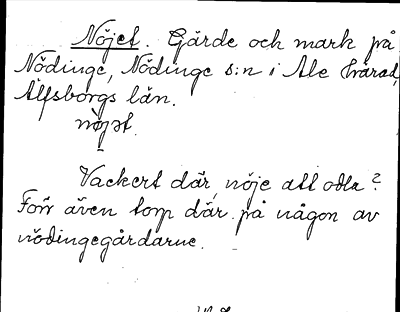 Nöjet. Gärde och mark på
Nödinge, Nödinge s:n i Ale härad,
Älfsborgs län.
nöjət.
Vackert där, nöje att odla?
Förr även torp där på någon av
nödingegårdarne.